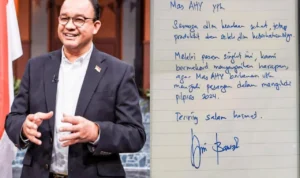 Mas AHY yth
Semoga dlm keadaan sehat, tetap
produktif dan selalu dlm
Melalui pesan singkat ini, kami
bermaksud menyampaikan harapan,
agar Mas AHY berkenan utk
menjadi pasangan dalam mengikuti
pilpres 2024.
Teriring salam hormat.